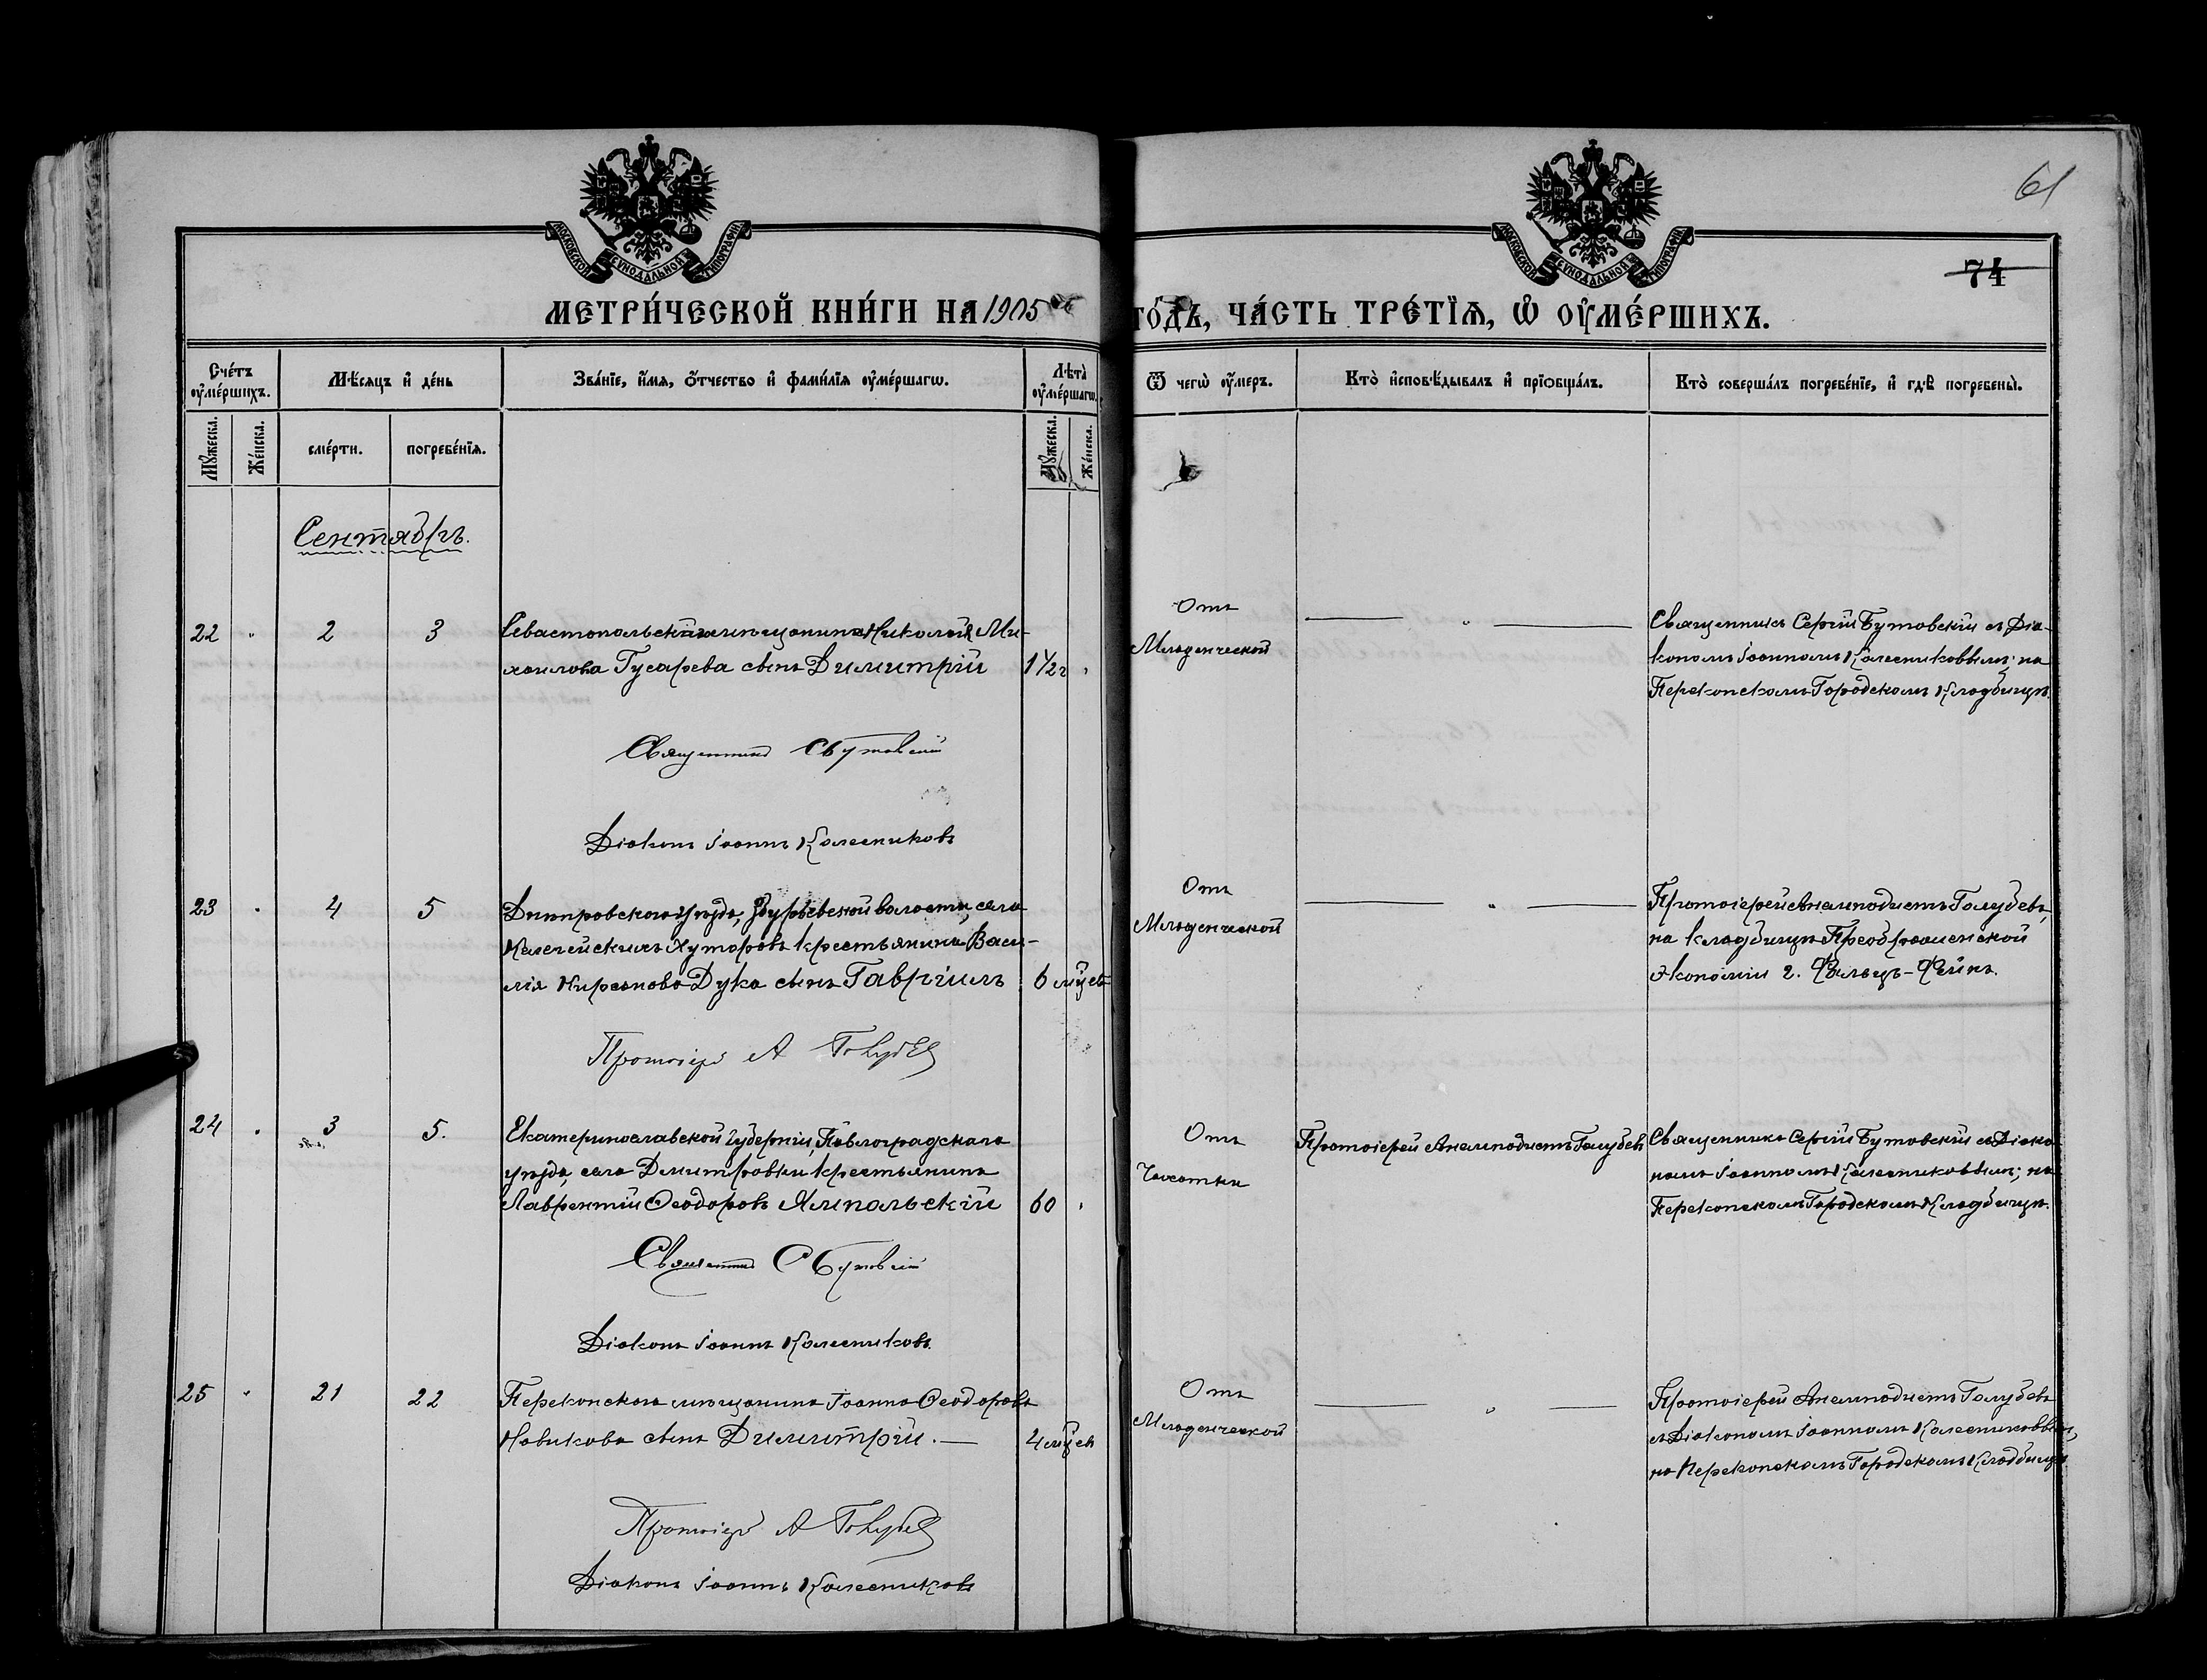 МОСКОВСКОЙ СѴНОДАЛЬНОЙ ТИПОГРАФІИ
МОСКОВСКОЙ СѴНОДАЛЬНОЙ ТИПОГРАФІИ
61
74
МЕТРИ́ЧЕСКОЙ КНИ́ГИ НА 1905
ГО́ДЪ, ЧА́СТЬ ТРЕ́ТЇѦ, Ѡ ОУ҆МЕ́РШИХЪ.
Сче́тъ оу҆ме́ршихъ.
Мѣ́сяцъ и҆ де́нь
Зва́нїе, и҆́мя, ѻ҆́тчество и҆ фами́лїя оу҆ме́ршагѡ.
Лѣта̀ оу҆ме́ршагѡ.
Ѿ чегѡ̀ оу҆́меръ.
Кто̀ и҆сповѣ́дывалъ и҆ прїѡбща́лъ.
Кто̀ соверша́лъ погребе́нїе, и҆ гдѣ̀ погребены̀.
Мꙋ́жеска.
Же́нска.
сме́рти.
погребе́нїя.
Мꙋ́жеска.
Же́нска.
Сентябрь.
22 " 2 3 Севастопольскаго мѣщанина Николая Ми-
хаилова Гусарева сынъ Димитрій 1½ г "
Отъ
Младенческой
— " —
Священникъ Сергій Бутовскій съ Діа-
кономъ Іоанномъ Колесниковымъ; на
Перекопскомъ Городскомъ Кладбищѣ.
Священникъ С Бутовскій
Діаконъ Іоаннъ Колесниковъ
23 " 4 5 Днѣпровскаго уѣзда, Збурьевской волости, села
Келегейскихъ Хуторовъ крестьянина Васи-
лія Кирсанова Дука сынъ Гавріилъ 6 мѣсть
Отъ
Младенческой
— " —
Протоіерей Анемподистъ Голубевъ,
на кладбищѣ Преображенской
экономіи г. Фальцъ-Фейнъ.
Протоіерей А Голубев
24 " 3 5. Екатеринославской губерніи, Павлоградскаго
уѣзда, села Дмитровки крестьянинъ
Лаврентій Ѳеодоровъ Ямпольскій 60 "
Отъ
Чахотки
Протоіерей Анемподистъ Голубевъ
Священникъ Сергій Бутовскій съ Діако-
номъ Іоанномъ Колесниковымъ; на
Перекопскомъ Городскомъ Кладбищѣ.
Священникъ С Бутовскій
Діаконъ Іоаннъ Колесниковъ.
25 " 21 22 Перекопскаго мѣщанина Іоанна Ѳеодорова
Новикова сынъ Димитрій. — 4 мѣсев
Отъ
Младенческой
— " —
Протоіерей Анемподистъ Голубевъ
съ Діакономъ Іоанномъ Колесниковымъ,
на Перекопскомъ Городскомъ Кладбищѣ
Протоіерей А Голубев
Діаконъ Іоаннъ Колесниковъ